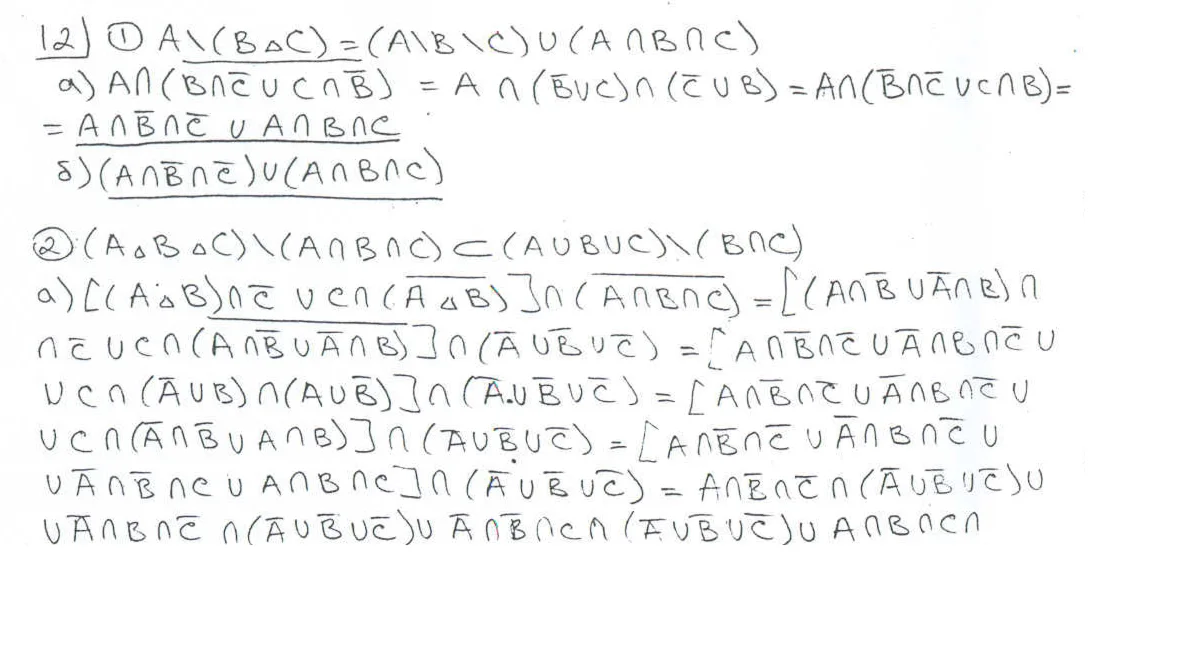 12) ① A\(B△C)=(A\B\C)∪(A∩B∩C)
а) A∩(B∩C̅ ∪ C∩B̅) = A ∩ (B̅∪C)∩(C̅∪B) = A∩(B̅∩C̅ ∪C∩B)=
= A∩B̅∩C̅ ∪ A∩B∩C
б)(A∩B̅∩C̅)∪(A∩B∩C)
② (A△B△C)\(A∩B∩C)⊂(A∪B∪C)\(B∩C)
а)[(A△B)∩C̅ ∪ C∩(A̅ ̅△̅ ̅B̅)]∩(A̅∩̅B̅∩̅C̅) = [(A∩B̅∪A̅∩B)∩
∩C̅∪C∩(A̅∩̅B̅̅∪̅A̅̅∩̅B̅)]∩(A̅∪B̅∪C̅) = [A∩B̅∩C̅∪A̅∩B∩C̅∪
∪C∩(A̅∪B)∩(A∪B̅)]∩(A̅∪B̅∪C̅) = [A∩B̅∩C̅∪A̅∩B∩C̅∪
∪C∩(A̅∩B̅∪A∩B)]∩(A̅∪B̅∪C̅) = [A∩B̅∩C̅∪A̅∩B∩C̅∪
∪A̅∩B̅∩C∪A∩B∩C]∩(A̅∪B̅∪C̅) = A∩B̅∩C̅∩(A̅∪B̅∪C̅)∪
∪A̅∩B∩C̅∩(A̅∪B̅∪C̅)∪A̅∩B̅∩C∩(A̅∪B̅∪C̅)∪A∩B∩C∩